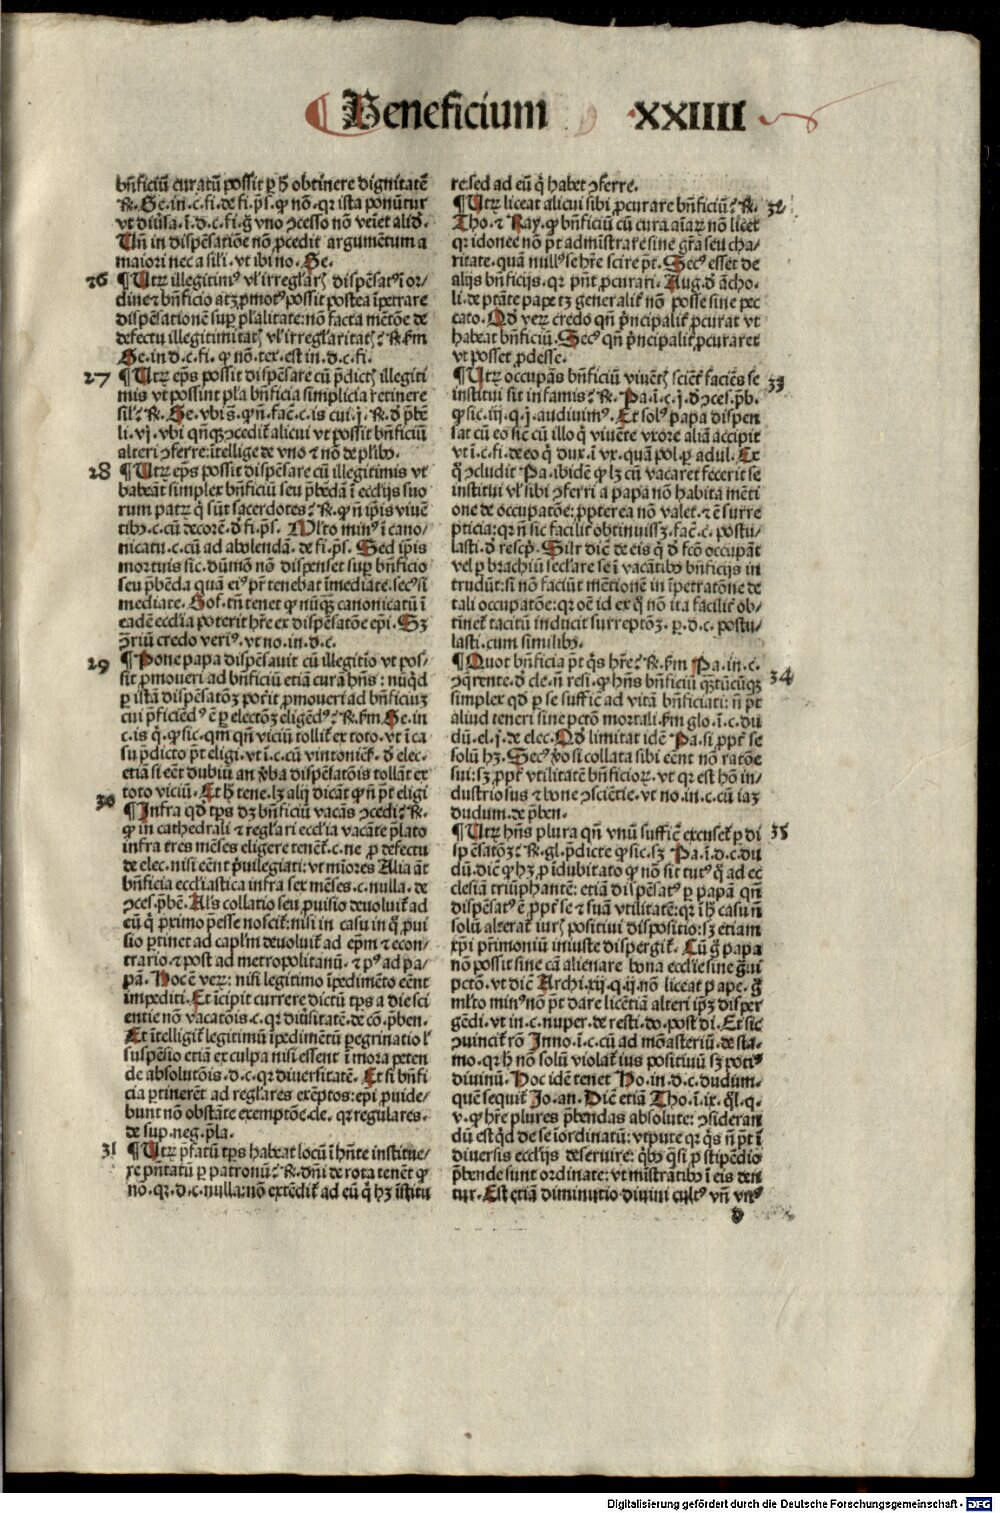 Beneficium XXIIII
bn̄ficiū curatū possit ꝑ h̄ obtinere dignitatē
℞. Ge. in. c. fi. de fi. p̄s. ꝙ nō. qꝛ ista ponūtur
vt diūsa. ī. d. c. fi. ḡ vno ↄcesso nō veīet aliđ.
Un̄ in dispēsatiōe nō ꝓcedit argumētum a
maiori nec a sil̄i. vt ibi no. Ge.
26 ¶ Utꝝ illegitimꝰ vl̓ irregl̓aris dispēsatꝰ ī or/
dine ⁊ bn̄ficio atqꝫ ꝓmotꝰ possit postea īpetrare
dispēsationē suꝑ pl̓alitate: nō facta mētōe de
defectu illegitimitatis vl̓ irregl̓aritatis? ℞. fm
Ge. in d. c. fi. ꝙ nō. tex. est in. d. c. fi.
27 ¶ Utꝝ ep̄s possit dispēsare cū p̄dictis illegiti
mis vt possint pl̓a bn̄ficia simplicia retinere
sil̓? ℞. Ge. vbi s̄. ꝙ n̄. fac̄. c. is cui. j. ℞. đ p̄bē
li. vj. vbi qn̄qꝫ ↄcedit̓ alicui vt possit bn̄ficiū
alteri ↄferre: ītellige de vno ⁊ nō de pl̓ibꝰ.
28 ¶ Utꝝ ep̄s possit dispēsare cū illegitimis vt
habeāt simplex bn̄ficiū seu p̄bēdā ī eccl̓ijs suo
rum patꝝ q̇ sūt sacerdotes? ℞. ꝙ n̄ ip̄is viuē
tibꝰ. c. cū decorē. đ fi. p̄s. Ml̓to minꝰ ī cano/
nicatu. c. cū ad abolendā. de fi. p̄s. Sed ip̄is
mortuis sic. dūmō nō dispenset suꝑ bn̄ficio
seu p̄bēda quā eiꝰ pr̄ tenebat īmediate. secꝰ si
mediate. Hos̄. tn̄ tenet ꝙ nūꝙꝫ canonicatū ī
eadē eccl̓ia poterit hr̄e ex dispēsatōe ep̄i. Sꝫ
ↄ̄riū credo veriꝰ. vt no. in. d. c.
29 ¶ Pone papa dispēsauit cū illegitīo vt pos/
sit ꝓmoueri ad bn̄ficiū etiā curā hn̄s: nūqđ
ꝑ istā dispēsatōꝫ pōtit ꝓmoueri ad bn̄ficiū
cui p̄ficiēdꝰ ē ꝑ electōꝫ eligēdꝰ? ℞. fm. Ge. in
c. is q̇. ꝙ sic. qm̄ qn̄ viciū tollit̓ ex toto. vt ī ca
su p̄dicto p̄t eligi. vt ī. c. cū vintoniēs̄. đ elec.
etiā si eēt dubiū an v̄ba dispēsatōis tollāt ex
toto viciū. Et h̄ tene. lꝫ alij dicāt ꝙ n̄ p̄t eligi
30 ¶ Infra qđ tp̄s dꝫ bn̄ficiū vacās ↄcedi? ℞.
ꝙ in cathedrali ⁊ regl̓ari eccl̓ia vacāte p̄lato
infra tres mēses eligere tenet̓. c. ne ꝓ defectu
de elec. nisi eēnt p̄uilegiati: vt mīores Alia āt
bn̄ficia eccl̓iastica infra sex mēses. c. nulla. de
ↄces. p̄bē. Al̓s collatio seu ꝓuisio deuoluit̓ ad
eū q̇ ꝓximo p̄esse noscit̓: nisi in casu in q̇ ꝓui
sio ꝑtinet ad capl̓m deuoluit̓ ad ep̄m ⁊ econ/
trario. ⁊ post ad metropolitanū. ⁊ pꝰ ad pa/
pā. Hoc ē veꝝ: nisi legitimo īpedimēto eēnt
impediti. Et īcipit currere dictū tp̄s a die sci
entie nō vacatōis. c. qꝛ diūsitatē. de cō. p̄ben.
Et ītelligit̓ legitimū īpedimētū ꝑegrinatio l̓
suspēsio etiā ex culpa nisi essent ī mora peten
de absolutōis. d. c. qꝛ diuersitatē. Et si bn̄fi
cia ꝑtinerēt ad regl̓ares exēptos: ep̄i ꝓuide/
bunt nō obstāte exemptōe. cle. qꝛ regulares.
de sup. neg. p̄la.
31 ¶ Utꝝ p̄fatū tp̄s habeat locū ī hn̄te institue/
re p̄ntatū ꝑ patronū? ℞. dn̄i de rota tenēt ꝙ
no. qꝛ. d. c. nulla: nō extēdit̓ ad eū q̇ hꝫ īstitu
re. sed ad eū q̇ habet ↄferre.
¶ Utꝝ liceat alicui sibi ꝓcurare bn̄ficiū? ℞. 32
Tho. ⁊ Ray. ꝙ bn̄ficiū cū cura aīaꝝ nō licet
qꝛ idonee nō p̄t admīstrare sine gr̄a seu cha/
ritate. quā nullꝰ se hr̄e scire p̄t. Secꝰ esset de
alijs bn̄ficijs. qꝛ pn̄t ꝓcurari. Aug. đ ācho/
li. de p̄tāte pape tꝫ generalit̓ nō posse sine pec
cato. Qđ veꝝ credo qn̄ p̄ncipalit̓ ꝓcurat vt
habeat bn̄ficiū. Secꝰ qn̄ p̄ncipalit̓ ꝓcuraret
vt posset ꝓdesse.
¶ Utꝝ occupās bn̄ficiū viuētis scient̓ faciēs se 33
institui sit infamis? ℞. Pa. ī. c. j. đ ↄces. p̄b.
ꝙ sic. iij. q. j. audiuimꝰ. Et solꝰ papa dispen
sat cū eo sic cū illo q̇ viuēte vxore aliā accipit
vt ī. c. fi. de eo q̇ dux. ī vx. quā pol. ꝑ adul. Ex
q̇ ↄcludit Pa. ibidē ꝙ lꝫ cū vacaret fecerit se
institui vl̓ sibi ↄferri a papa nō habita mēti
one de occupatōe: ꝓpterea nō valet. ⁊ ē surre
pticia: qꝛ n̄ sic facilit̓ obtinuissꝫ. fac̄. c. postu/
lasti. đ rescp̄. Silr̄ dic̄ de eis q̇ đ fc̄o occupāt
vel ꝑ brachiū secl̓are se ī vacātibꝰ bn̄ficijs in
trudūt: si nō faciūt mētionē in īpetratōne de
tali occupatōe: qꝛ oē id ex q̇ nō ita facilit̓ ob/
tinet̓ tacitū inducit surreptōꝫ. ꝑ. d. c. postu/
lasti. cum similibꝰ.
¶ Quot bn̄ficia p̄t q̇s hr̄e? ℞. fm Pa. in. c. 34
ↄq̄rente. đ cle. n̄ resi. ꝙ hn̄s bn̄ficiū qꝫtūcūqꝫ
simplex qđ ꝑ se suffic̄ ad vitā bn̄ficiati: n̄ p̄t
aliud teneri sine pctō mortali. fm glo. ī. c. du
dū. el. j. de elec. Qđ limitat idē Pa. si ꝓpt̓ se
solū hꝫ. Secꝰ v̄o si collata sibi eēnt nō ratōe
sui: sꝫ ꝓpt̓ vtilitatē bn̄ficioꝝ. vt qꝛ est hō in/
dustriosus ⁊ bone ↄsciētie. vt no. in. c. cū iaꝫ
dudum. de p̄ben.
¶ Utꝝ hn̄s plura qn̄ vnū suffic̄ excuset̓ ꝑ di 35
spēsatōꝫ? ℞. gl. p̄dicte ꝙ sic. sꝫ Pa. ī. d. c. du
dū. dic̄ ꝙ hꝫ ꝓ īdubitato ꝙ nō sit tutꝰ q̇ ad ec
clesiā triūphantē: etiā dispēsatꝰ ꝑ papā qn̄
dispēsatꝰ ē ꝓpt̓ se ⁊ suā vtilitatē: qꝛ ī h̄ casu n̄
solū alterat̓ iuris positiui dispositio: sꝫ etiam
xp̄i pr̄imoniū iniuste dispergit̓. Cū ḡ papa
nō possit sine cā alienare bona eccl̓ie sine ḡui
pctō. vt dic̄ Archi. xij. q. ij. nō liceat pape. ḡ
ml̓to minꝰ nō p̄t dare licētiā alteri ip̄ꝫ disper
gēdi. vt in. c. nuper. de resti. do. post di. Et sic
ↄuincit̓ rō Inno. ī. c. cū ad mōasteriū. de sta/
mo. qꝛ h̄ nō solū violat̓ ius positiuū sꝫ potiꝰ
diuinū. Hoc idē tenet Ho. in. d. c. dudum.
quē sequit̓ Jo. an. Dic̄ etiā Tho. ī. ix. q̄l. q.
v. ꝙ hr̄e plures p̄bendas absolute: ↄsideran
dū est qđ de se īordinatū: vtpute qꝛ q̇s n̄ p̄t ī
diuersis eccl̓ijs deseruire: q̇bꝰ q̄si ꝓ stipēdio
p̄bende sunt ordinate: vt mīstrātibꝰ ī eis den
tur. Est etiā diminutio diuini cultꝰ vn̄ vnꝰ
d
Digitalisierung gefördert durch die Deutsche Forschungsgemeinschaft - DFG